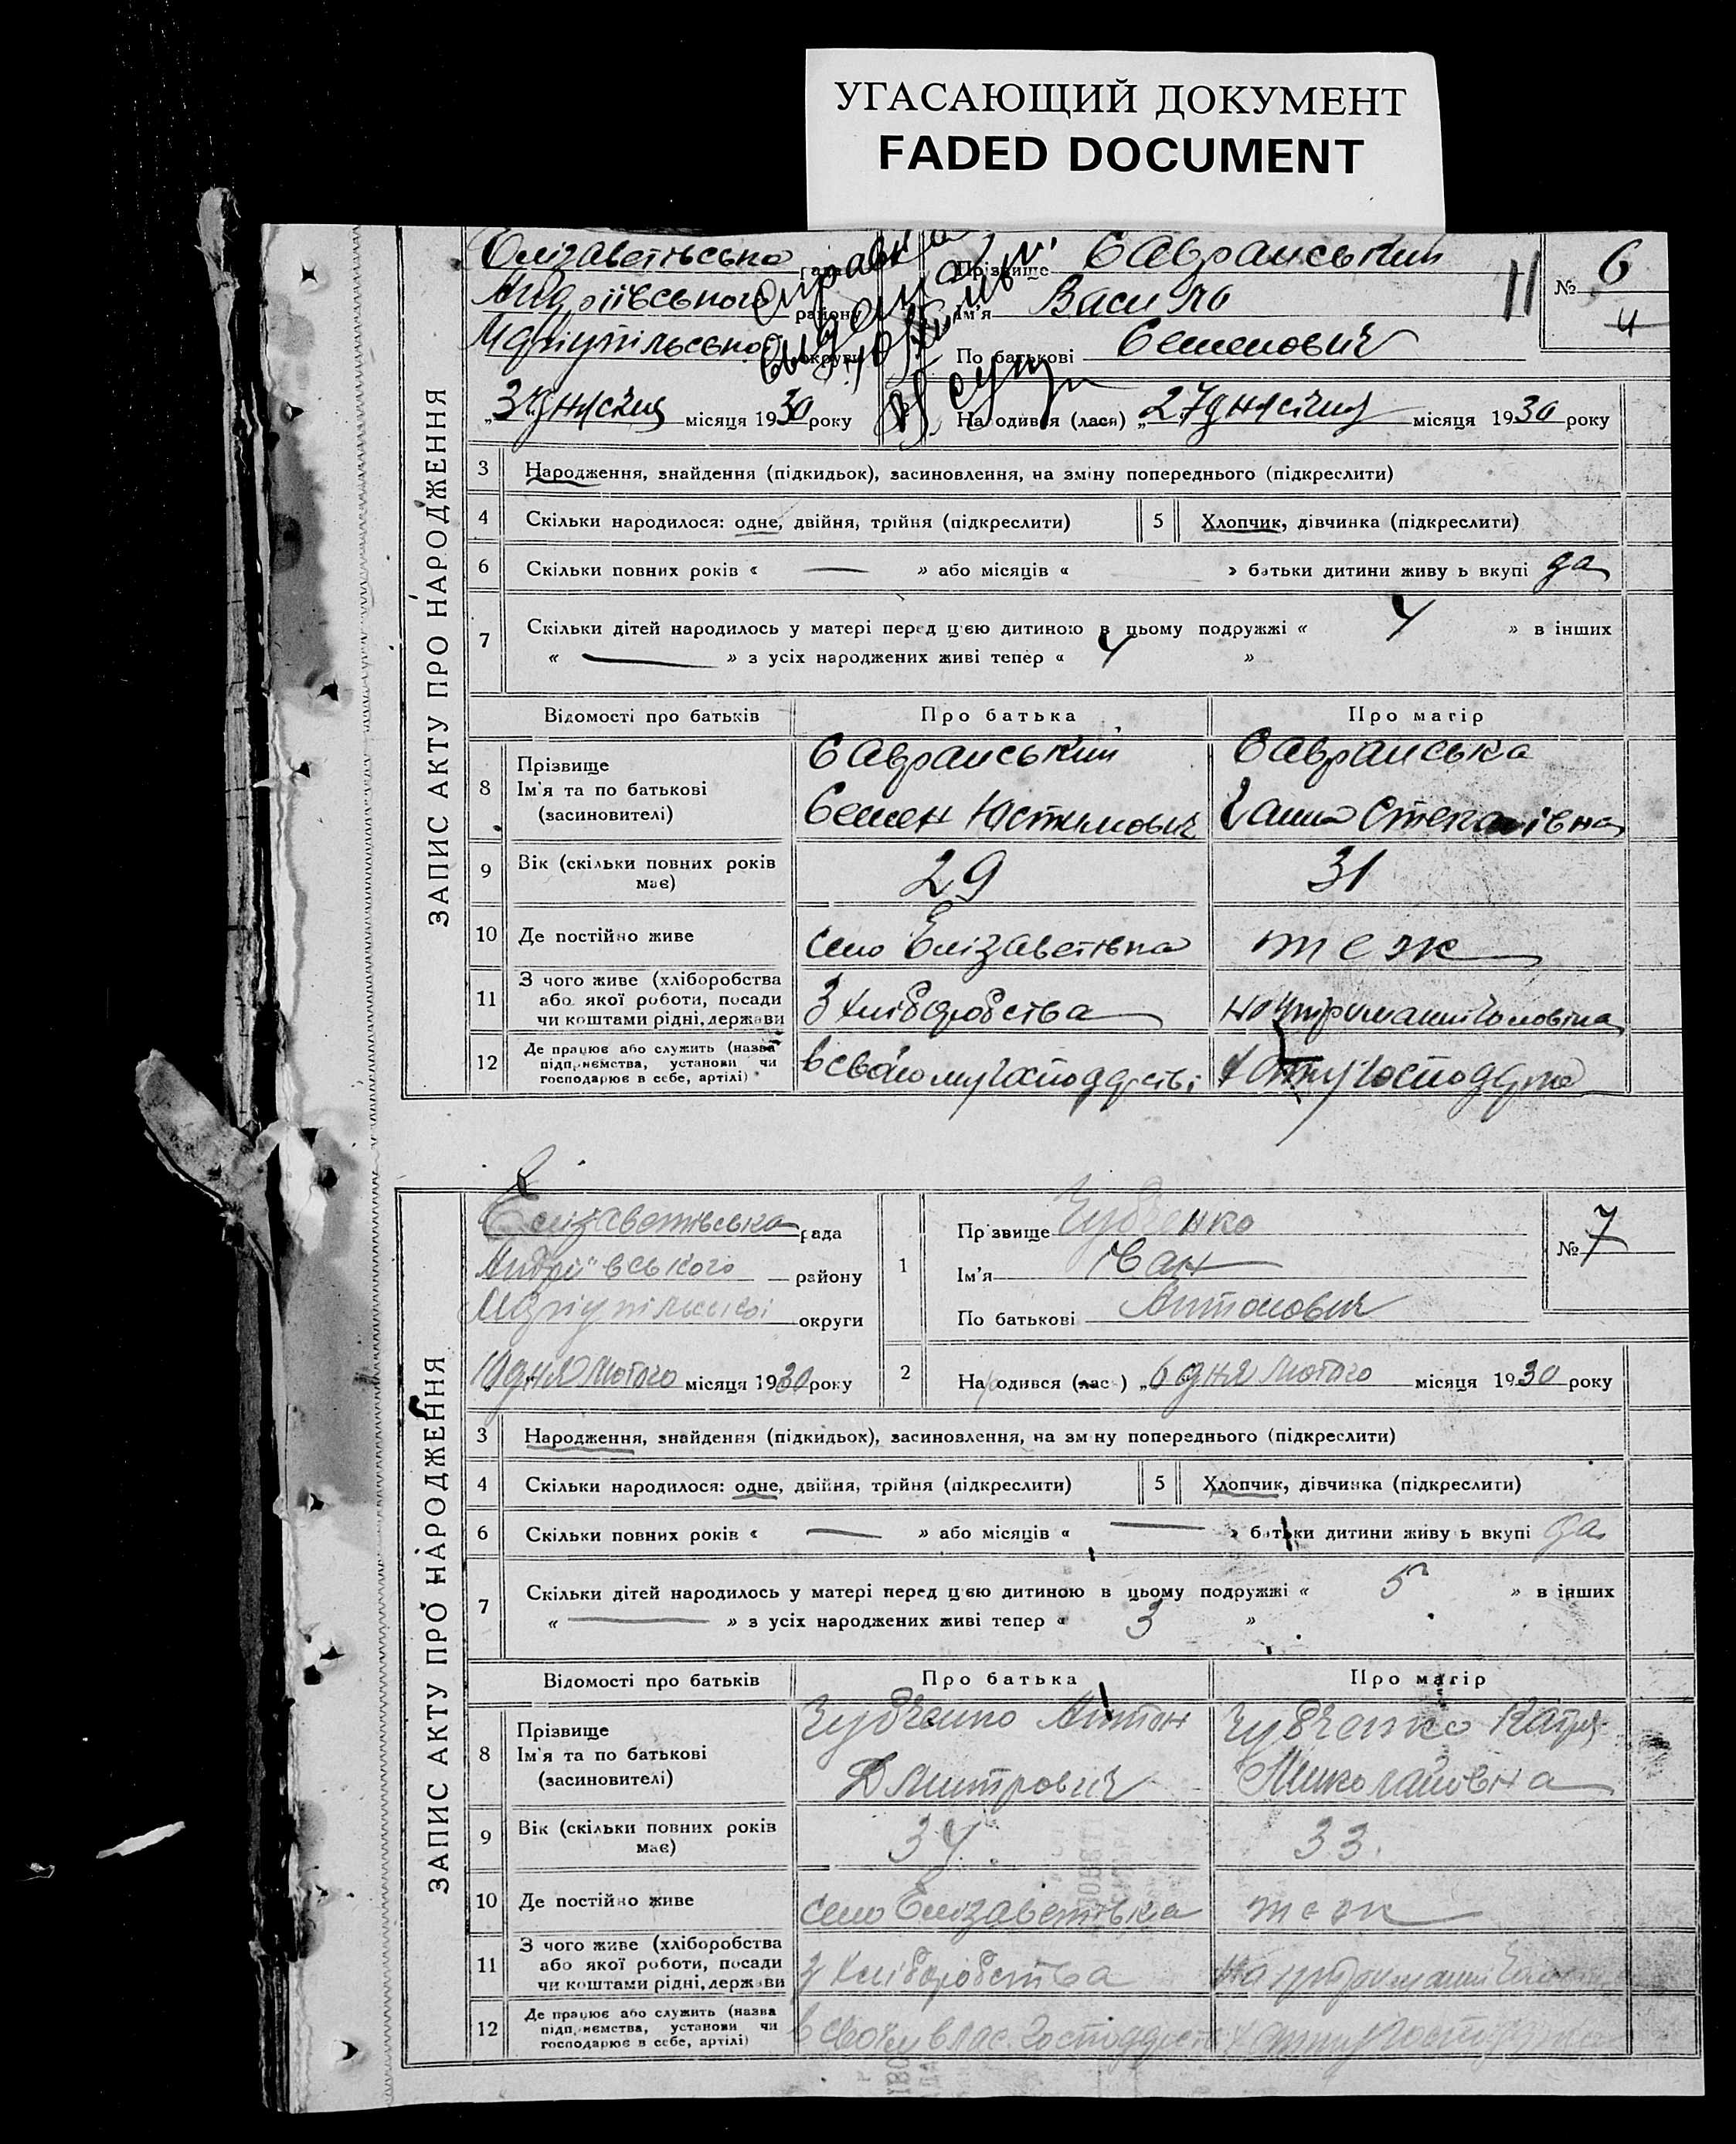 УГАСАЮЩИЙ ДОКУМЕНТ
FADED DOCUMENT
ЗАПИС АКТУ ПРО НАРОДЖЕННЯ
Єлізаветівська рада
Андріївського району
Маріупільської округи
Справка
выдана
Прізвище Савранський
Ім'я Василь
По батькові Семенович
11
№ 6
4
„31 дня січня місяця 1930 року
Народився (лася) „27 дня січня місяця 1930 року
3 Народження, знайдення (підкидьок), засиновлення, на зміну попереднього (підкреслити)
4 Скільки народилося: одне, двійня, трійня (підкреслити) 5 Хлопчик, дівчинка (підкреслити)
6 Скільки повних років « — » або місяців « » батьки дитини живу ь вкупі да
7 Скільки дітей народилось у матері перед цією дитиною в цьому подружжі « 4 » в інших
« — » з усіх народжених живі тепер « 4 »
Відомості про батьків Про батька Про матір
8 Прізвище Савранський Савранська
Ім'я та по батькові
(засиновителі) Семен Юстимович Ганна Степанівна
9 Вік (скільки повних років має) 29 31
10 Де постійно живе село Єлізаветівка теж
11 З чого живе (хліборобства або якої роботи, посади чи коштами рідні, держави З хліборобства на утриманні чоловіка
12 Де працює або служить (назва підприємства, установи чи господарює в себе, артілі) в своіому господарстві хатня господарка
ЗАПИС АКТУ ПРО НАРОДЖЕННЯ
Єлізаветівська рада
Андріївського району
Маріупільської округи
1 Прізвище Зубченко
Ім'я Іван
По батькові Антонович
№ 7
10 дня Лютого місяця 1930 року
2 Народився (лас ) „6 дня Лютого місяця 1930 року
3 Народження, знайдення (підкидьох), засиновлення, на зм ну попереднього (підкреслити)
4 Скільки народилося: одне, двійня, трійня (підкреслити) 5 Хлопчик, дівчинка (підкреслити)
6 Скільки повних років « — » або місяців « — » батьки дитини живу ь вкупі да
7 Скільки дітей народилось у матері перед цією дитиною в цьому подружжі « 5 » в інших
« — » з усіх народжених живі тепер « 3 »
Відомості про батьків Про батька Про матір
8 Прізвище Зубченко Антон Зубченко Катря
Ім'я та по батькові
(засиновителі) Дмитрович Миколаївна
9 Вік (скільки повних років має) 34 33.
10 Де постійно живе село Єлізаветівка теж
11 З чого живе (хліборобства або якої роботи, посади чи коштами рідні, держави З хліборобства на утриманні
12 Де працює або служить (назва підприємства, установи чи господарює в себе, артілі) в своїм влас. господарстві